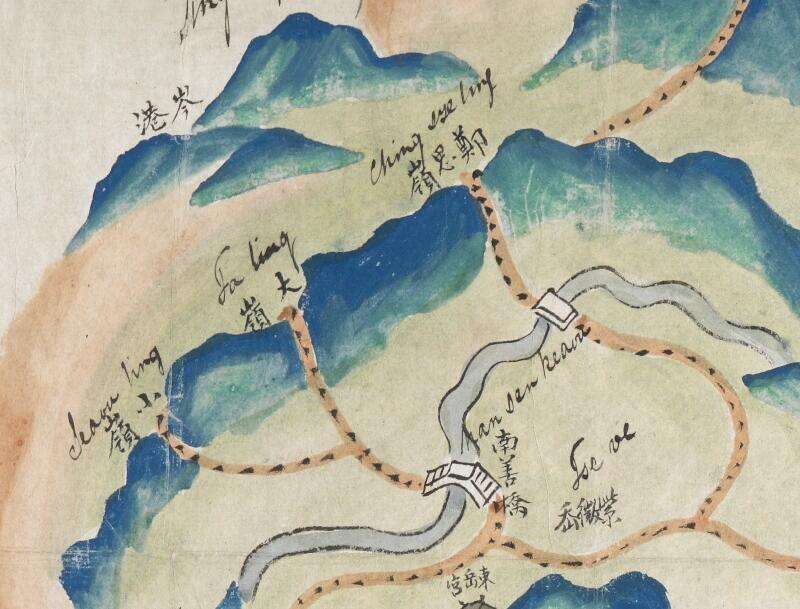 岑港
Ching sze ling
鄭思嶺
Ta ling
大嶺
Seaou ling
小嶺
nan sen keaou
南善橋
Tsze ve
紫微岙
東岳宮